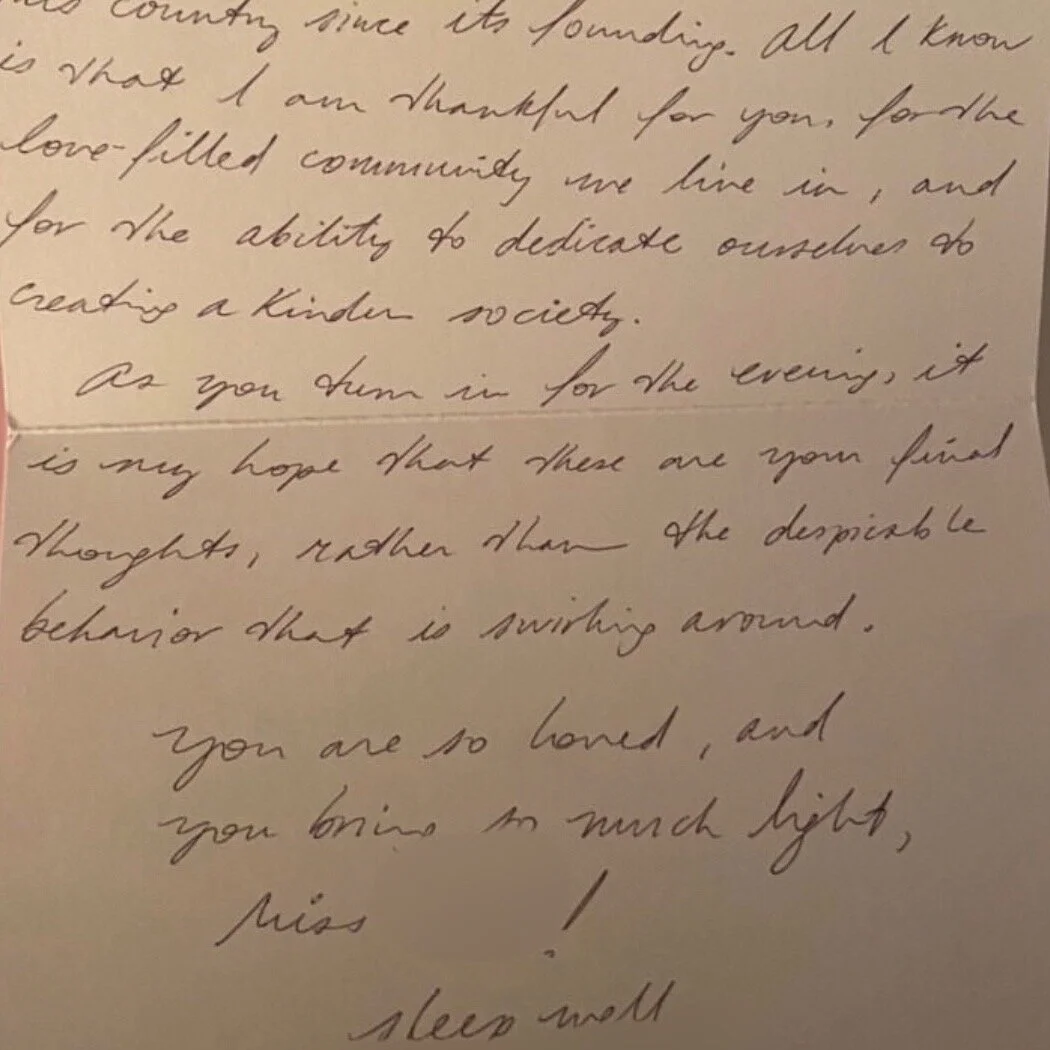 this country since its founding. All I know
is that I am thankful for you, for the
love-filled community we live in, and
for the ability to dedicate ourselves to
creating a kinder society.
As you turn in for the evening, it
is my hope that these are your final
thoughts, rather than the despicable
behavior that is swirling around.
you are so loved, and
you bring so much light,
Miss !
sleep well